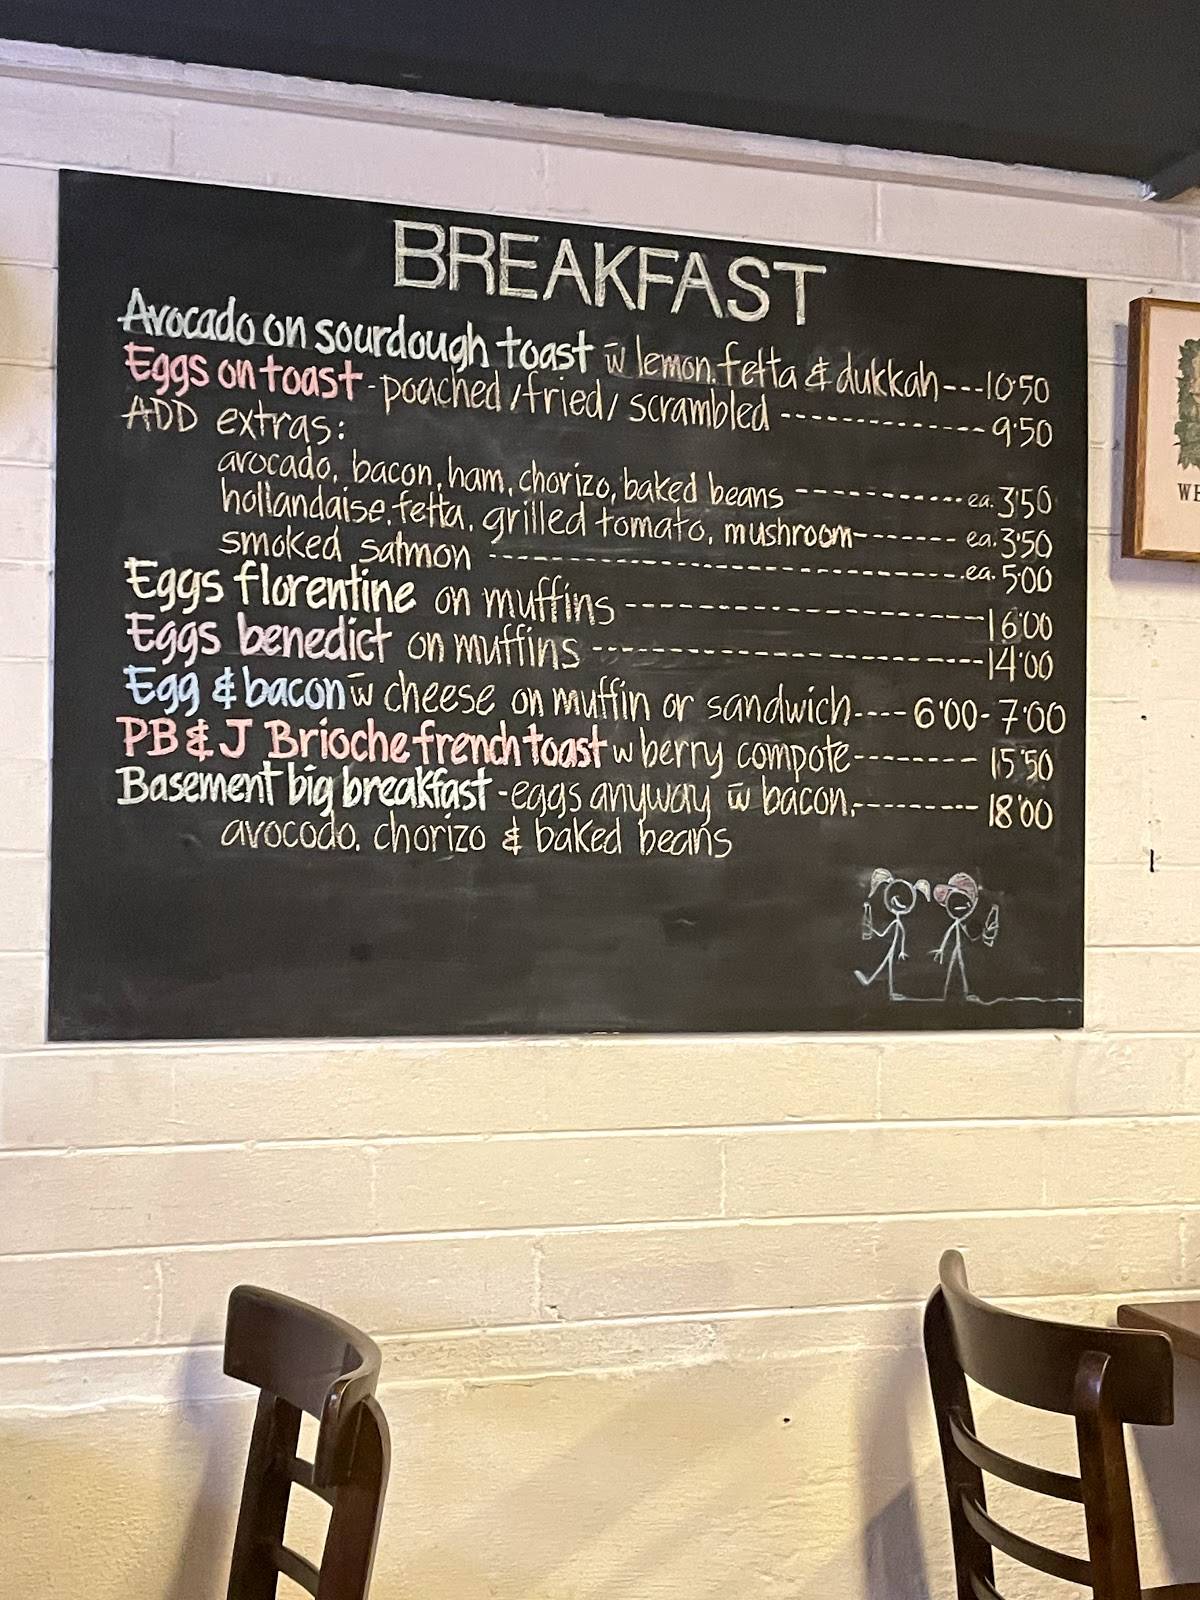 BREAKFAST
Avocado on sourdough toast w̅ lemon, fetta & dukkah---10'50
Eggs on toast - poached / fried / scrambled ------------- 9'50
ADD extras:
avocado, bacon, ham, chorizo, baked beans ----------- ea. 3'50
hollandaise, fetta, grilled tomato, mushroom------- ea. 3'50
smoked salmon ------------------------------ ea. 5'00
Eggs florentine on muffins ----------------------16'00
Eggs benedict on muffins ------------------------14'00
Egg & bacon w̅ cheese on muffin or sandwich---- 6'00- 7'00
PB & J Brioche french toast w berry compote-------- 15'50
Basement big breakfast - eggs anyway w̅ bacon,--------- 18'00
avocodo, chorizo & baked beans
WE